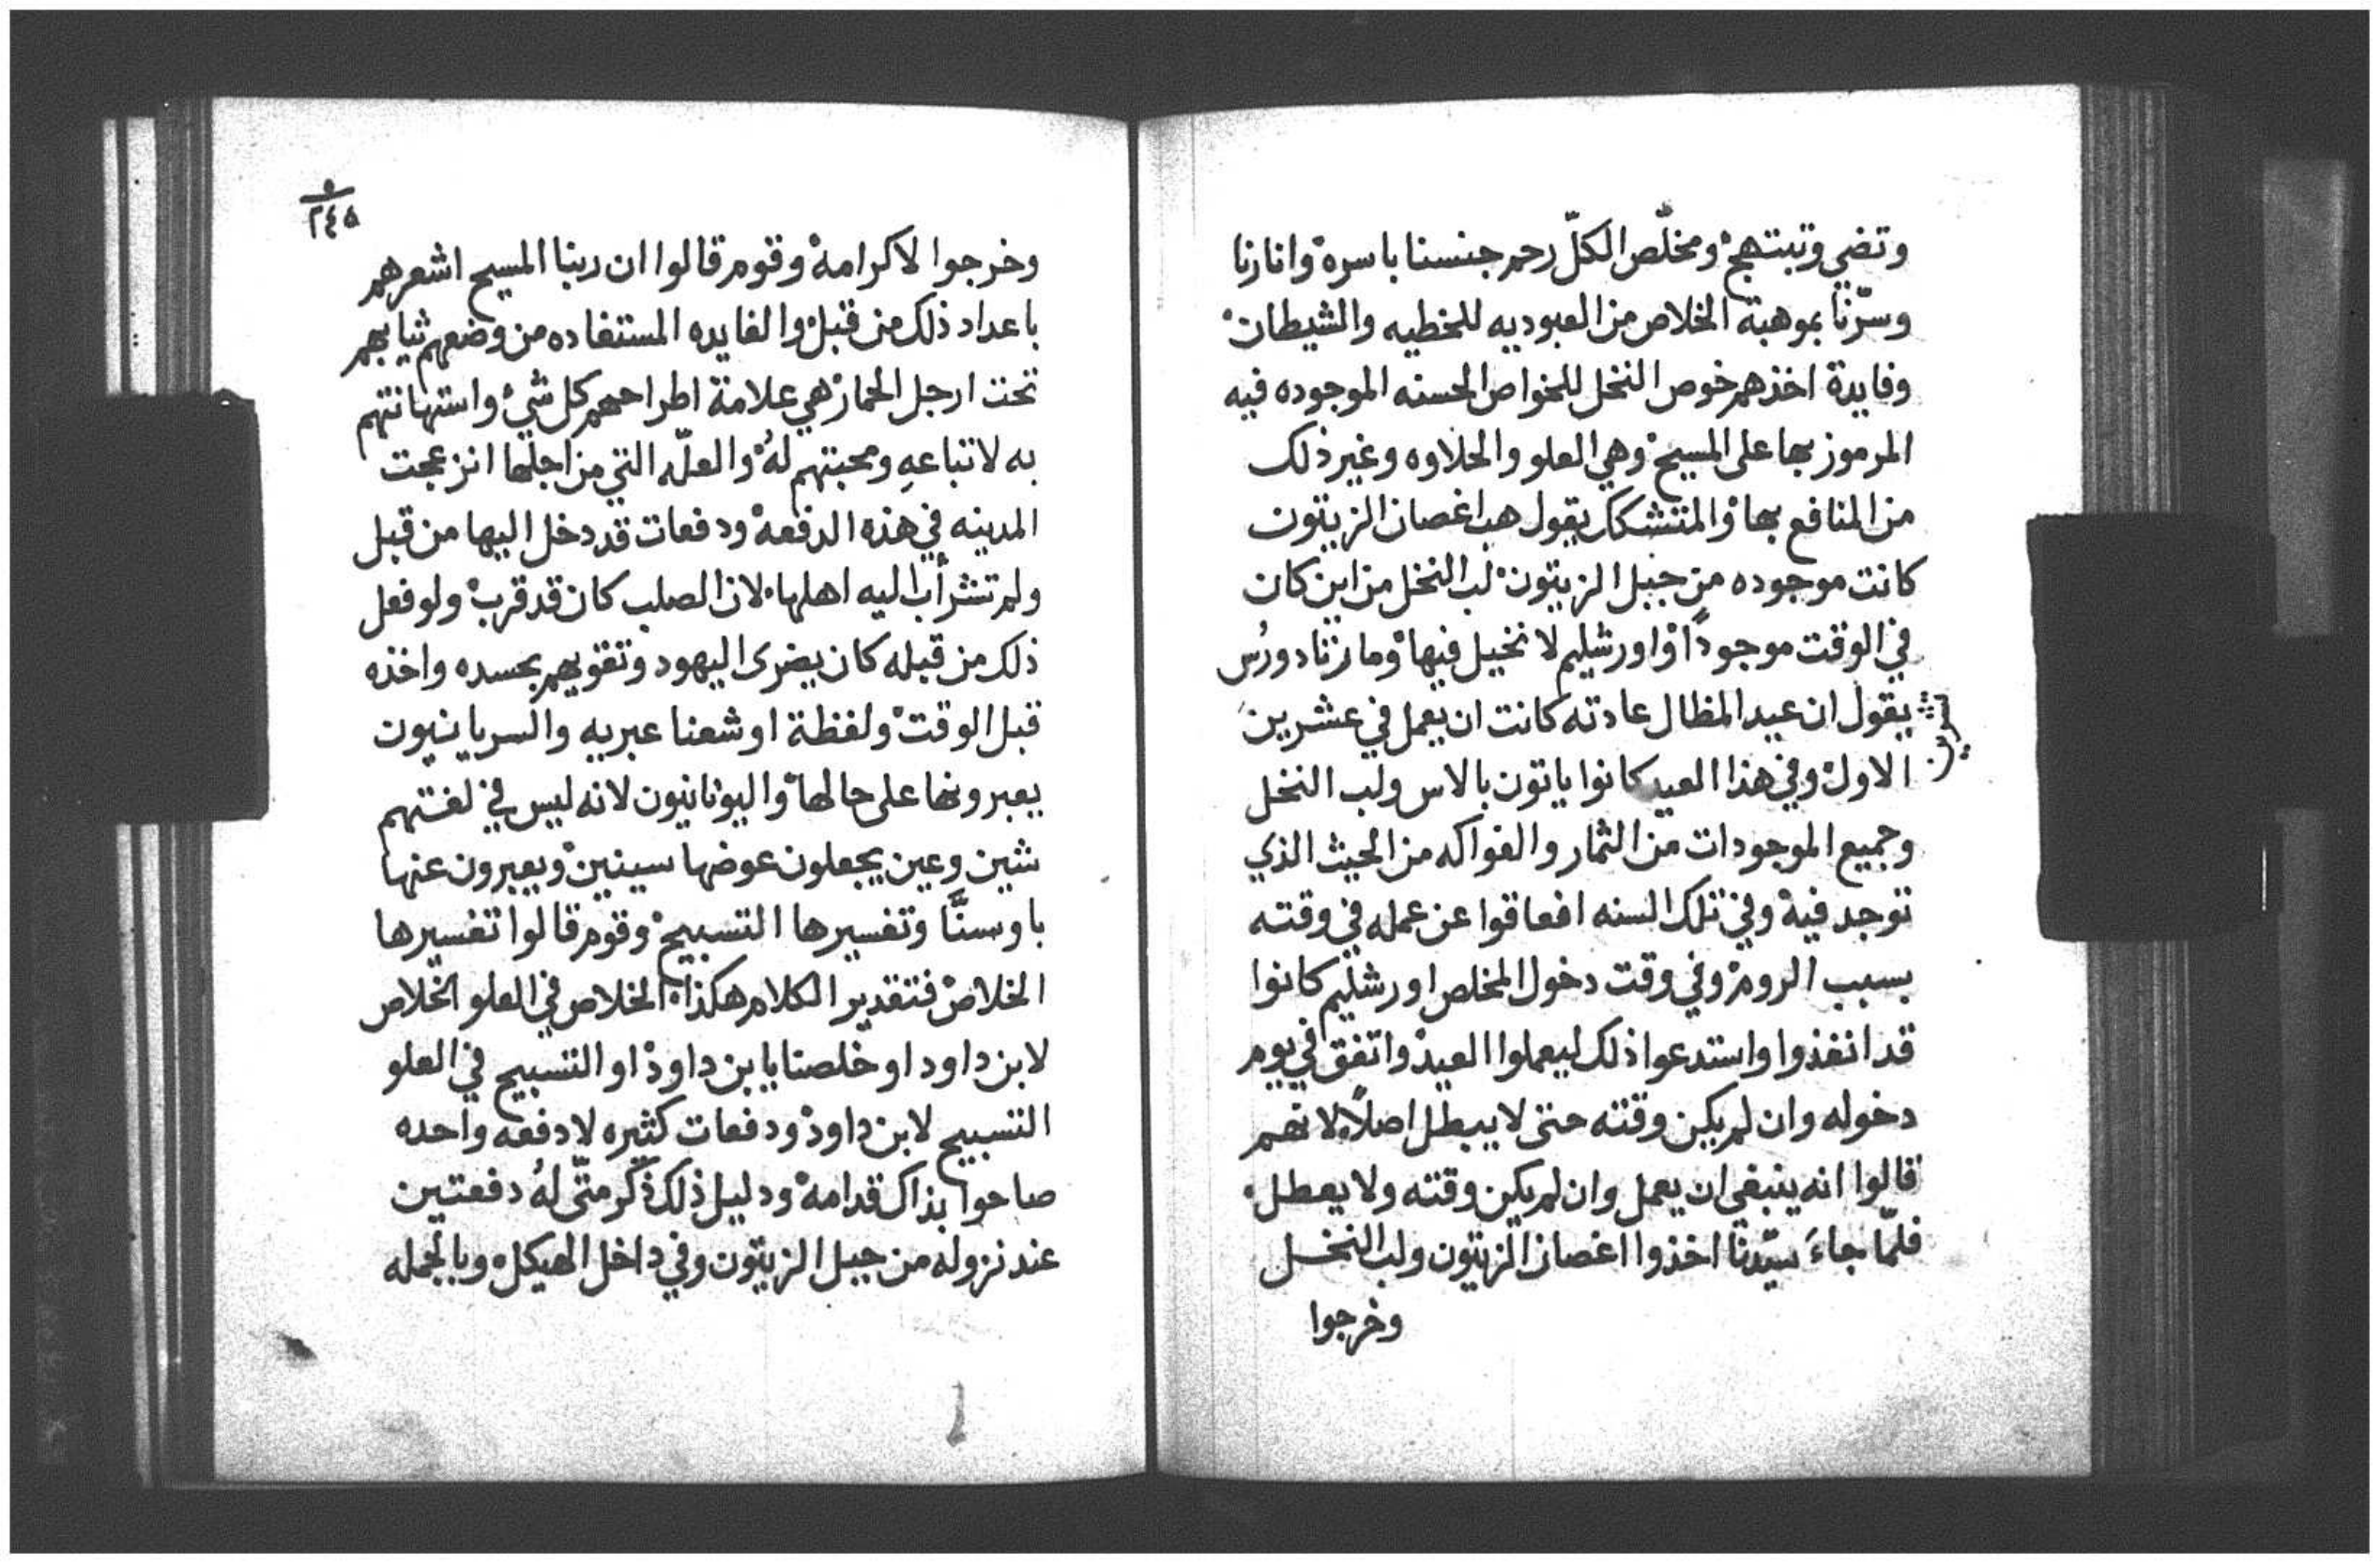 وتضي وتبتهج ومخلّص الكلّ رحم جنسنا باسره وانارنا
وسرّنا بموهبة الخلاص من العبوديه للخطيه والشيطان
وفايدة اخذهم خوص النخل للخواص الحسنه الموجوده فيه
المرموز بها على المسيح وهي العلو والحلاوه وغير ذلك
من المنافع بها والمتشكك يقول هب اغصان الزيتون
كانت موجوده من جبل الزيتون لب النخل من اين كان
في الوقت موجوداً واورشليم لا نخيل فيها وما رثادورُس
يقول ان عيد المظال عادته كانت ان يعمل في عشرين
تشرين
الاول وفي هذا العيد كانوا ياتون بالاس ولب النخل
وجميع الموجودات من الثمار والفواكه من الحيث الذي
توجد فيه وفي تلك السنه افعاقوا عن عمله في وقته
بسبب الروم وفي وقت دخول المخلص اورشليم كانوا
قد انفذوا واستدعوا ذلك ليعملوا العيد واتفق في يوم
دخوله وان لم يكن وقته حتى لا يبطل اصلاً لانهم
قالوا انه ينبغي ان يعمل وان لم يكن وقته ولا يعطل
فلمّا جاءَ سيّدنا اخذوا اغصان الزيتون ولب النخل
وخرجوا
٢٤٥
وخرجوا لاكرامه وقوم قالوا ان ربنا المسيح اشعرهم
باعداد ذلك من قبل والفايده المستفاده من وضعهم ثيابهم
تحت ارجل الحمار هي علامة اطراحهم كل شيء واستهانتهم
به لاتباعهِ ومحبتهم لهُ والعلّه التي من اجلها انزعجت
المدينه في هذه الدفعه ودفعات قد دخل اليها من قبل
ولم تشرأب اليه اهلها لان الصلب كان قد قرب ولو فعل
ذلك من قبله كان يضرى اليهود وتقويهم بحسده واخذه
قبل الوقت ولفظة اوشعنا عبريه والسريانيون
يعبرونها على حالها واليونانيون لانه ليس في لغتهم
شين وعين يجعلون عوضها سينين ويعبرون عنها
باوسنَّا وتفسيرها التسبيح وقوم قالوا تفسيرها
الخلاص فتقدير الكلام هكذا الخلاص في العلو الخلاص
لابن داود او خلصنا يا بن داود او التسبيح في العلو
التسبيح لابن داود ودفعات كثيره لا دفعه واحده
صاحوا بذاك قدامه ودليل ذلك ذكر متّى لهُ دفعتين
عند نزوله من جبل الزيتون وفي داخل الهيكل وبالجمله